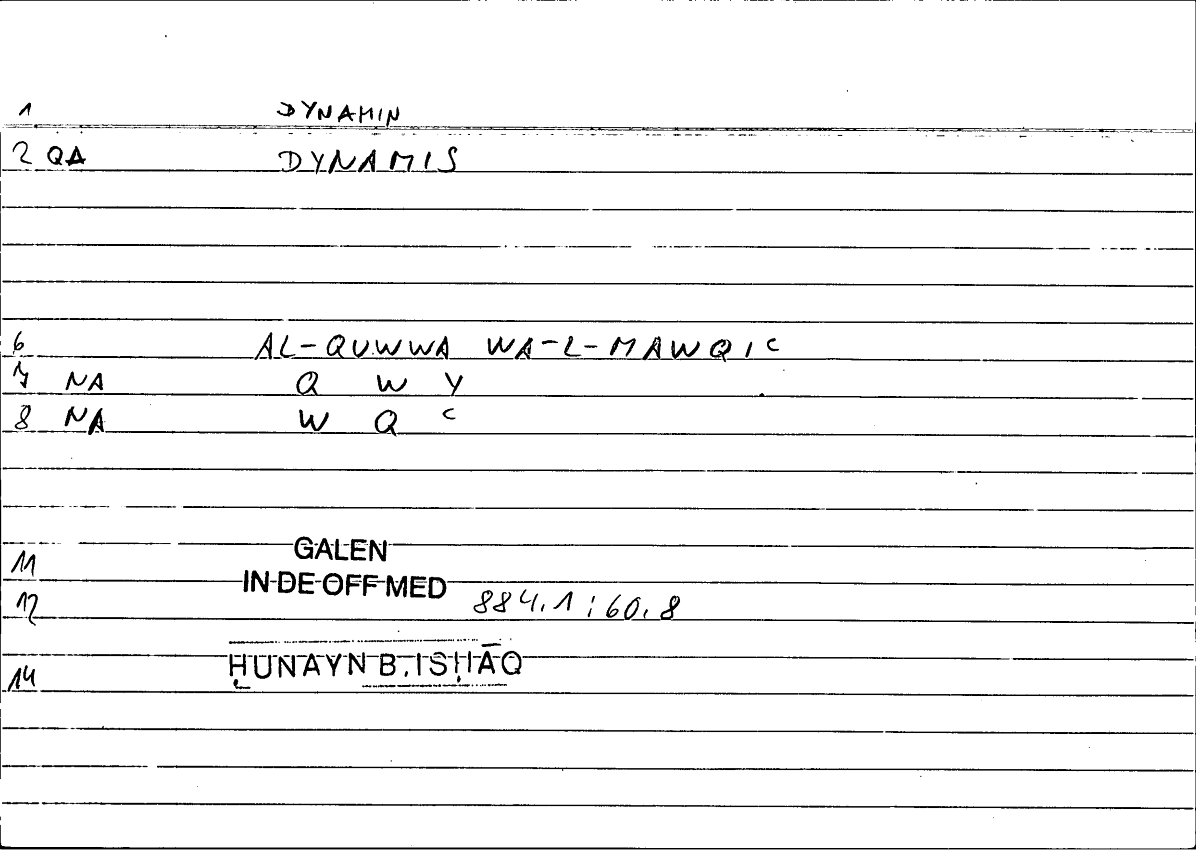 1 DYNAMIN
2 QA DYNAMIS
6 AL-QUWWA WA-L-MAWQIC
7 NA Q W Y
8 NA W Q C
11 GALEN
12 IN DE OFF MED 884.1;60.8
14 ḤUNAYN B. ISḤĀQ